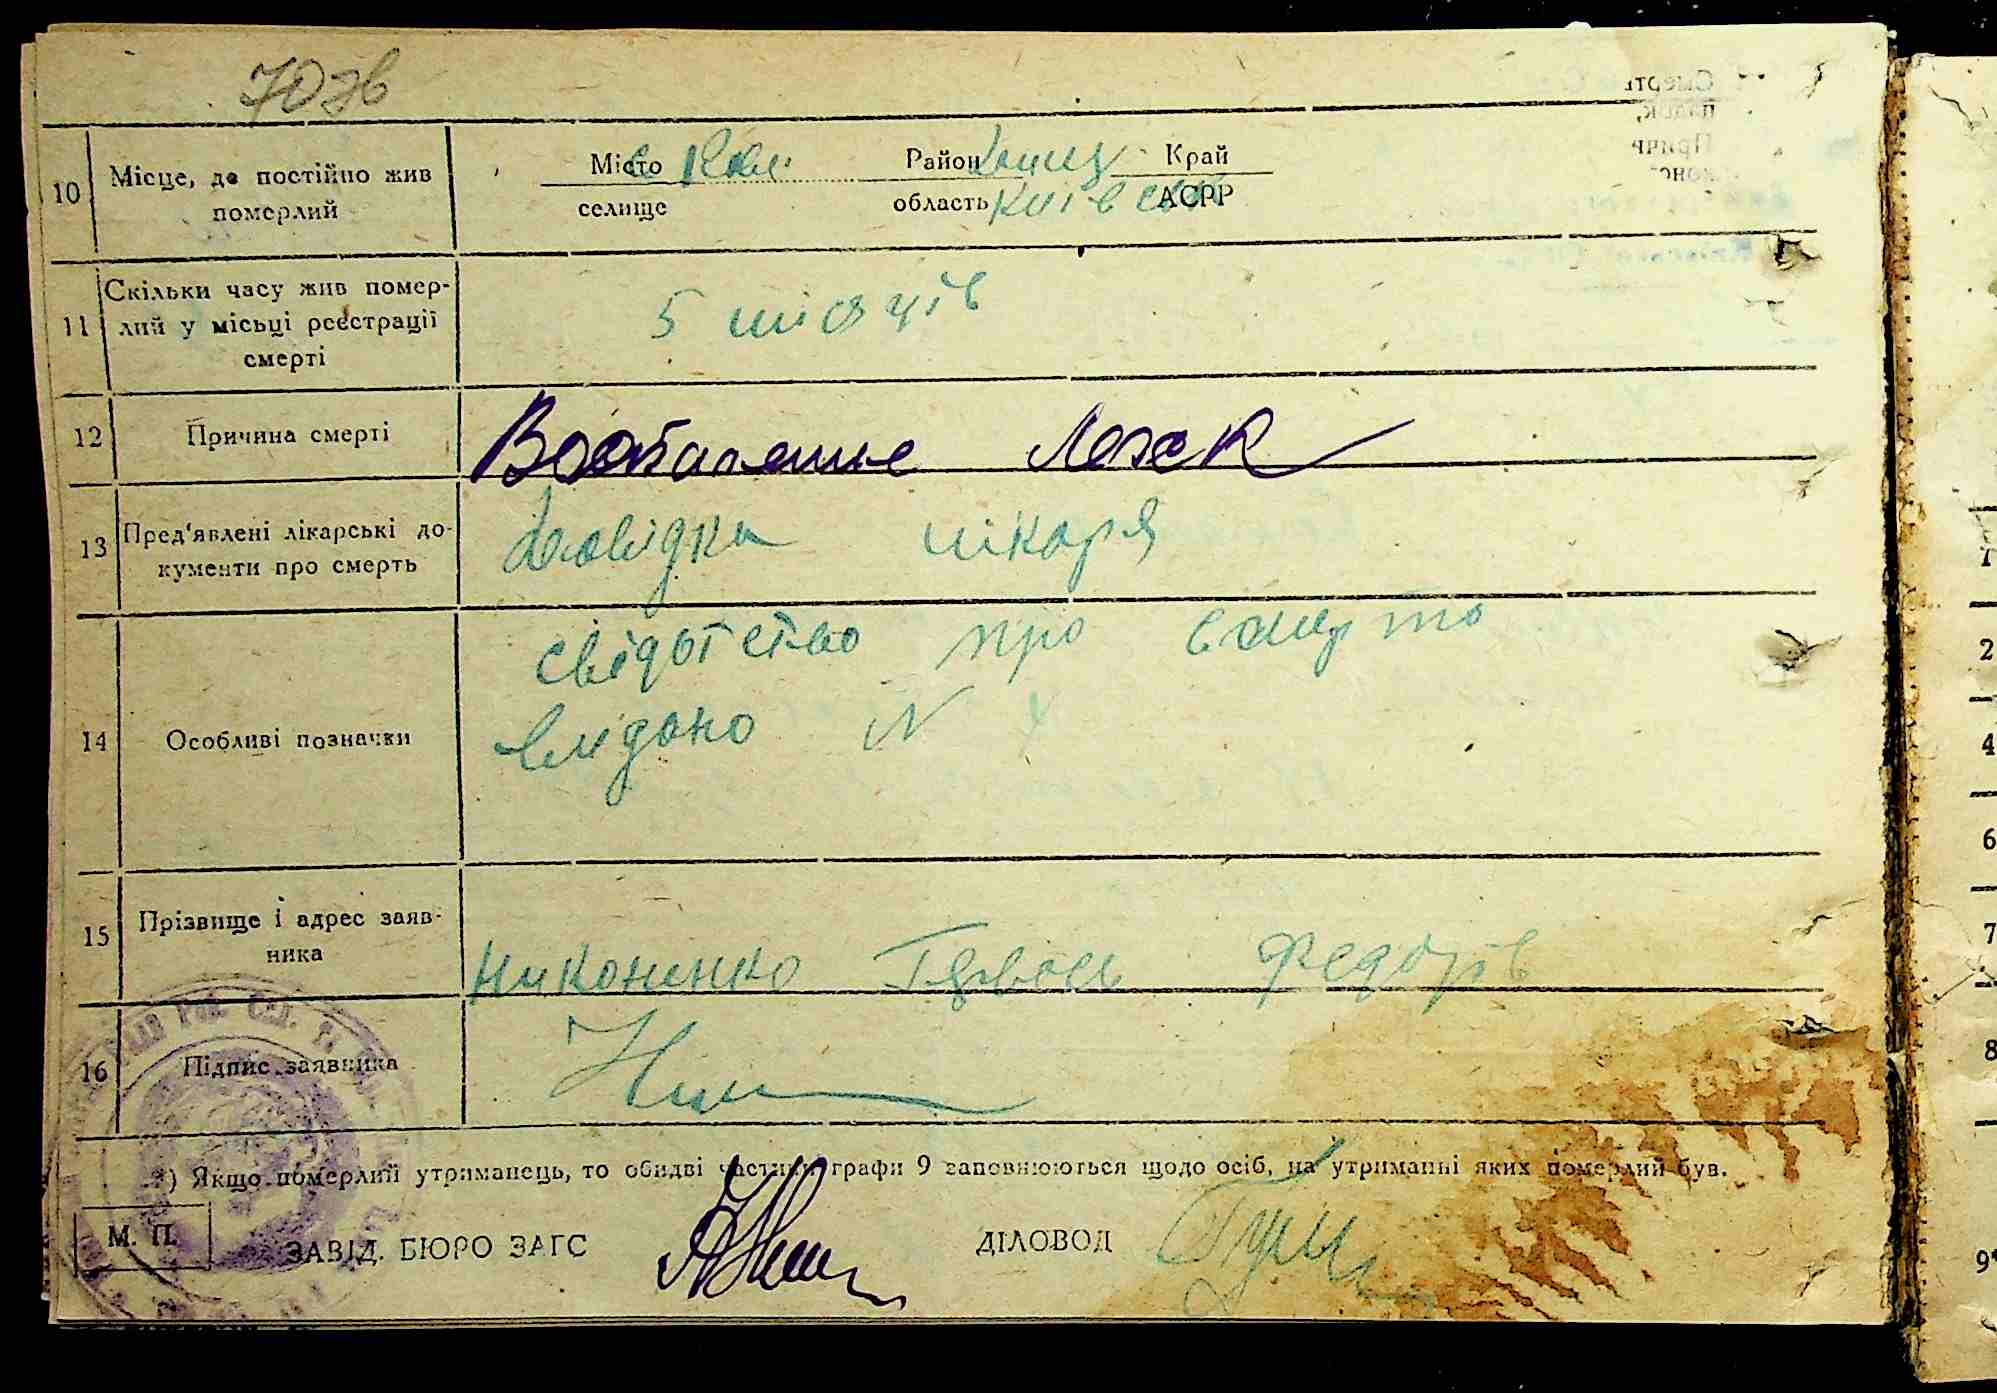 10 Місце, де постійно жив померлий
Місто селище Район область Київськ Край АСРР
11 Скільки часу жив помер-
лий у місьці реєстрації
смерті
5 місяців
12 Причина смерті
Воспаление легк
13 Пред'явлені лікарські до-
кументи про смерть
довідка лікаря
14 Особливі позначки
свідотство про смерть
видано N
15 Прізвище і адрес заяв-
ника
Никоненко Федорів
16 Підпис заявника
*) Якщо померлий утриманець, то обидві частини графи 9 заповнюються щодо осіб, на утриманні яких померлий був.
М. П.
ЗАВІД. БЮРО ЗАГС ДІЛОВОД
1
2
4
6
7
8
9*